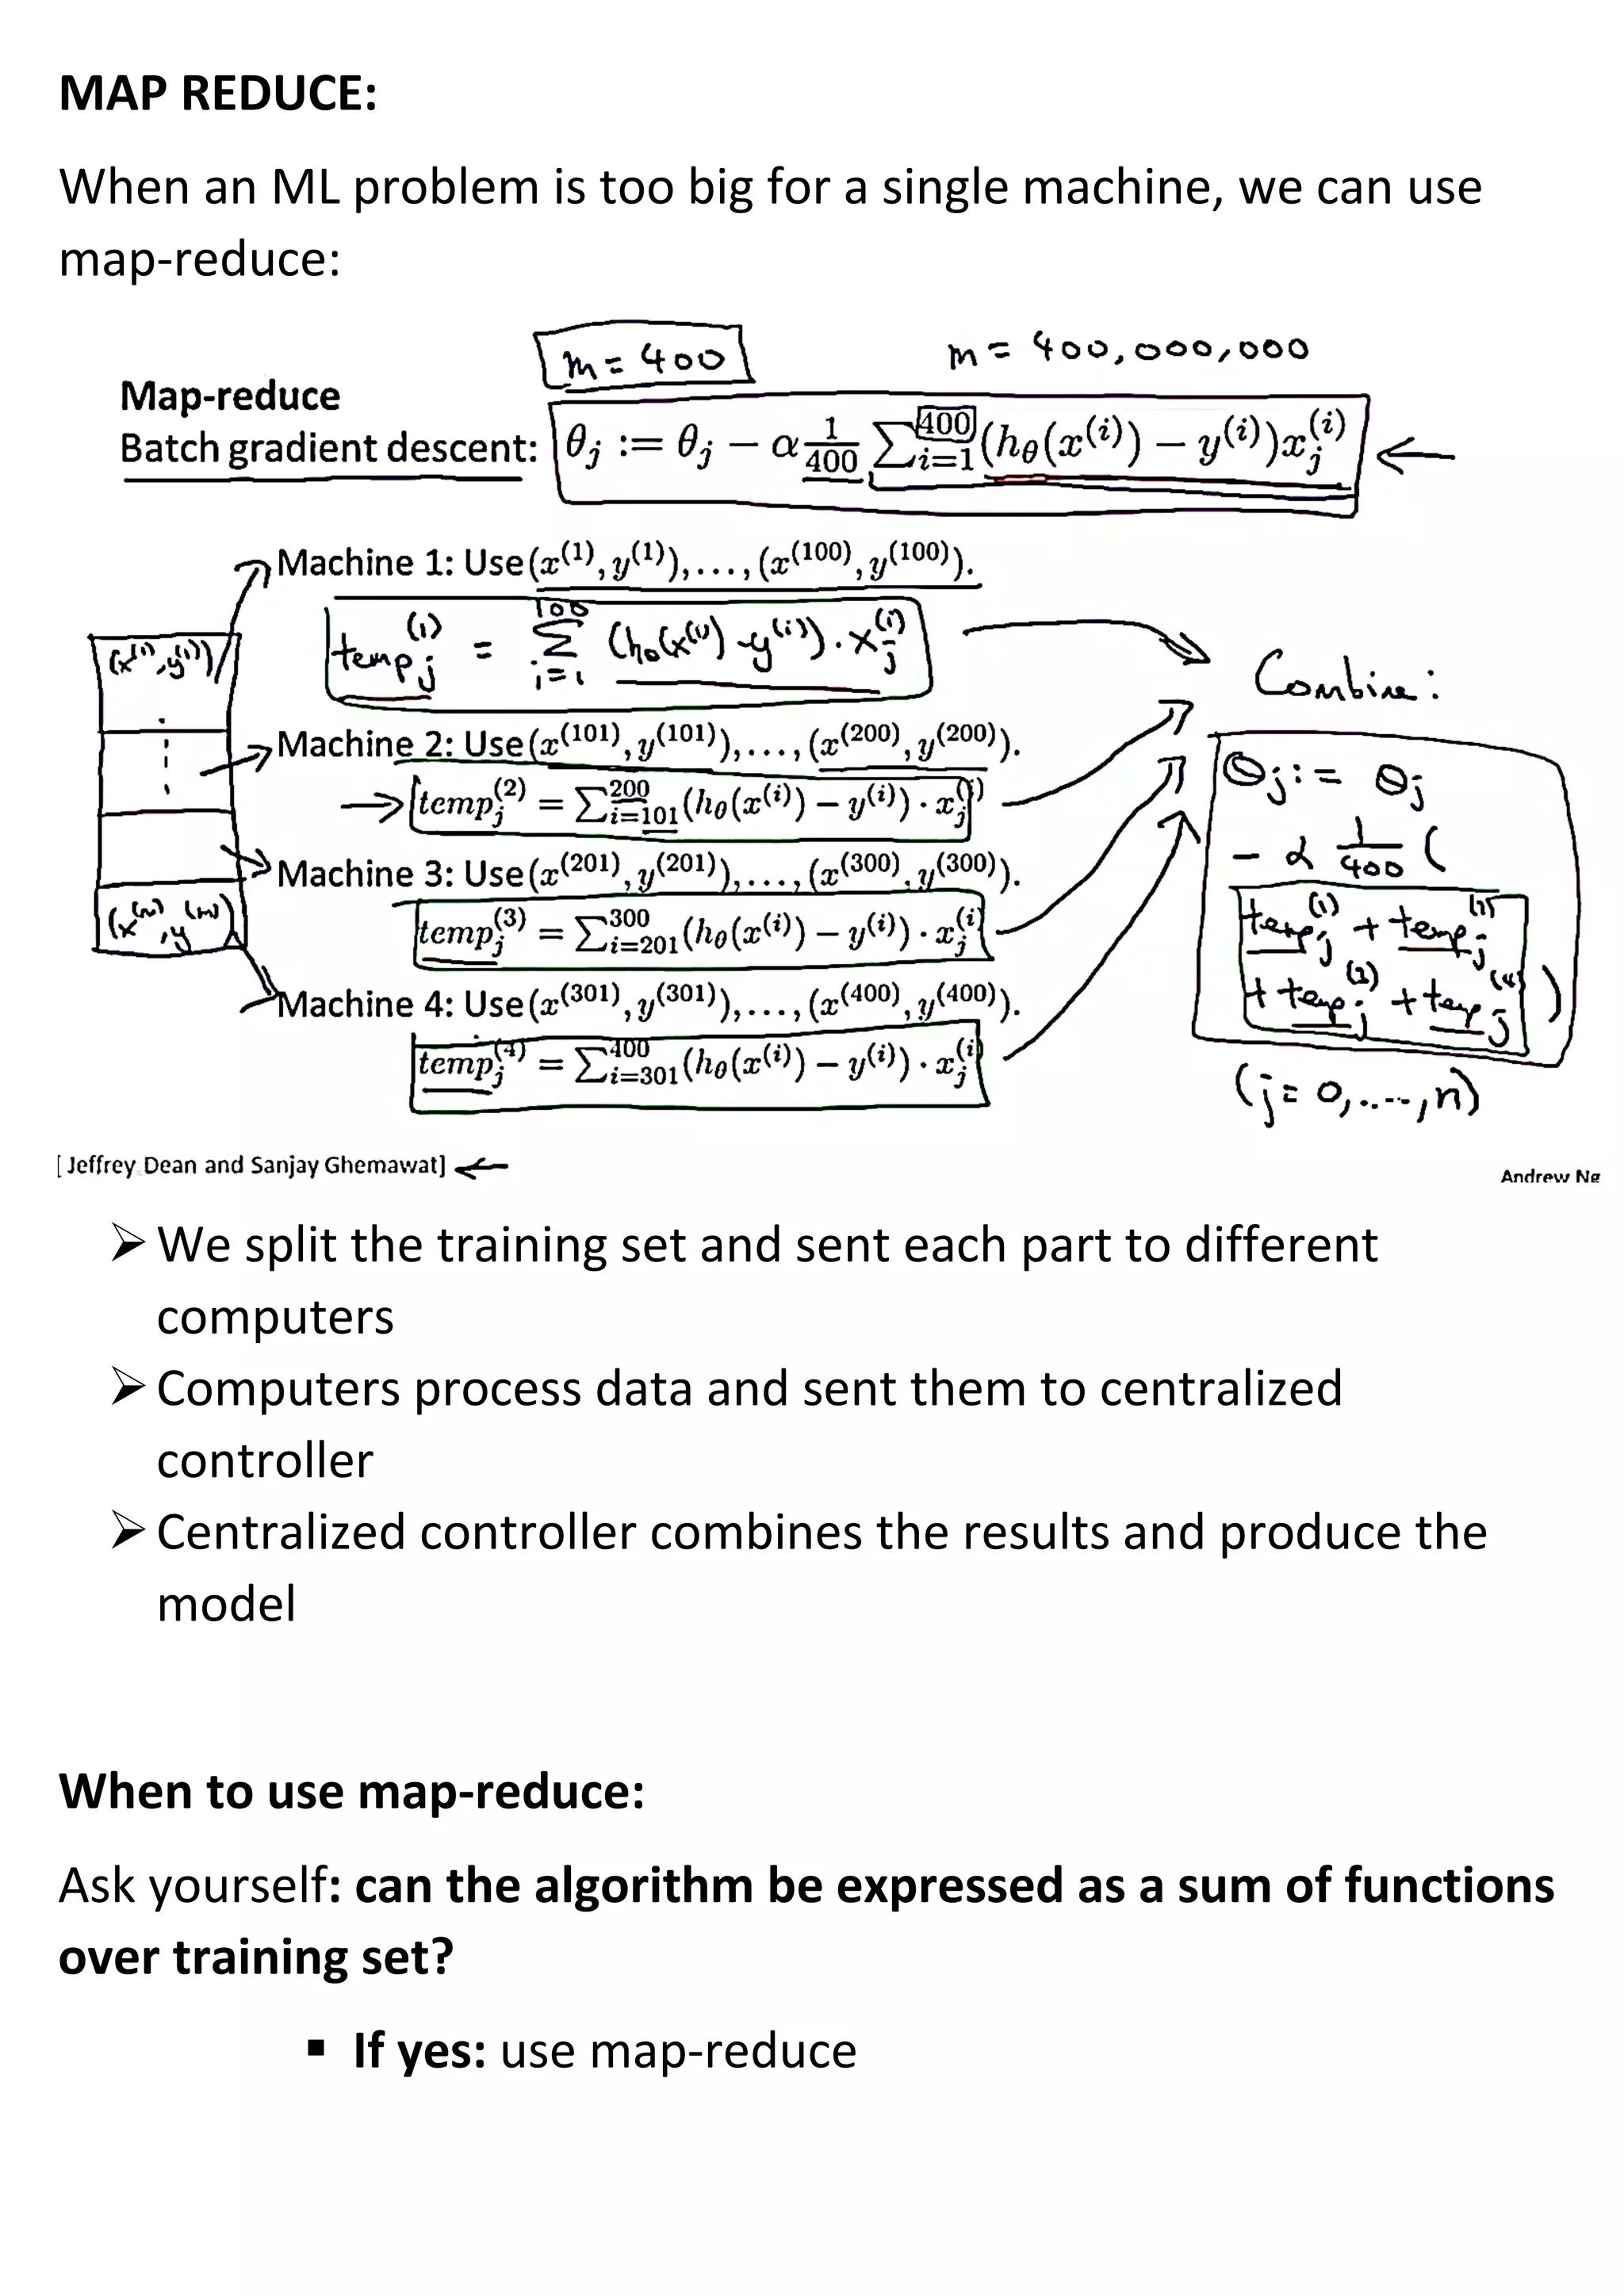 MAP REDUCE:
When an ML problem is too big for a single machine, we can use
map-reduce:
m = 400
m = 400,000,000
Map-reduce
Batch gradient descent: θ_j := θ_j − α 1/400 ∑_{i=1}^{400} (h_θ(x^{(i)}) − y^{(i)}) x_j^{(i)}
Machine 1: Use (x^{(1)}, y^{(1)}), ..., (x^{(100)}, y^{(100)}).
temp_j^{(1)} = ∑_{i=1}^{100} (h_θ(x^{(i)}) - y^{(i)}) · x_j^{(i)}
(x^{(1)}, y^{(1)})
Combine:
Machine 2: Use (x^{(101)}, y^{(101)}), ..., (x^{(200)}, y^{(200)}).
temp_j^{(2)} = ∑_{i=101}^{200} (h_θ(x^{(i)}) − y^{(i)}) · x_j^{(i)}
Machine 3: Use (x^{(201)}, y^{(201)}), ..., (x^{(300)}, y^{(300)}).
temp_j^{(3)} = ∑_{i=201}^{300} (h_θ(x^{(i)}) − y^{(i)}) · x_j^{(i)}
(x^{(m)}, y^{(m)})
Machine 4: Use (x^{(301)}, y^{(301)}), ..., (x^{(400)}, y^{(400)}).
temp_j^{(4)} = ∑_{i=301}^{400} (h_θ(x^{(i)}) − y^{(i)}) · x_j^{(i)}
θ_j := θ_j
- α 1/400 (
temp_j^{(1)} + temp_j
+ temp_j + temp_j^{(4)} )
(j = 0, ...., n)
[ Jeffrey Dean and Sanjay Ghemawat]
Andrew Ng
➢ We split the training set and sent each part to different
computers
➢ Computers process data and sent them to centralized
controller
➢ Centralized controller combines the results and produce the
model
When to use map-reduce:
Ask yourself: can the algorithm be expressed as a sum of functions
over training set?
▪ If yes: use map-reduce